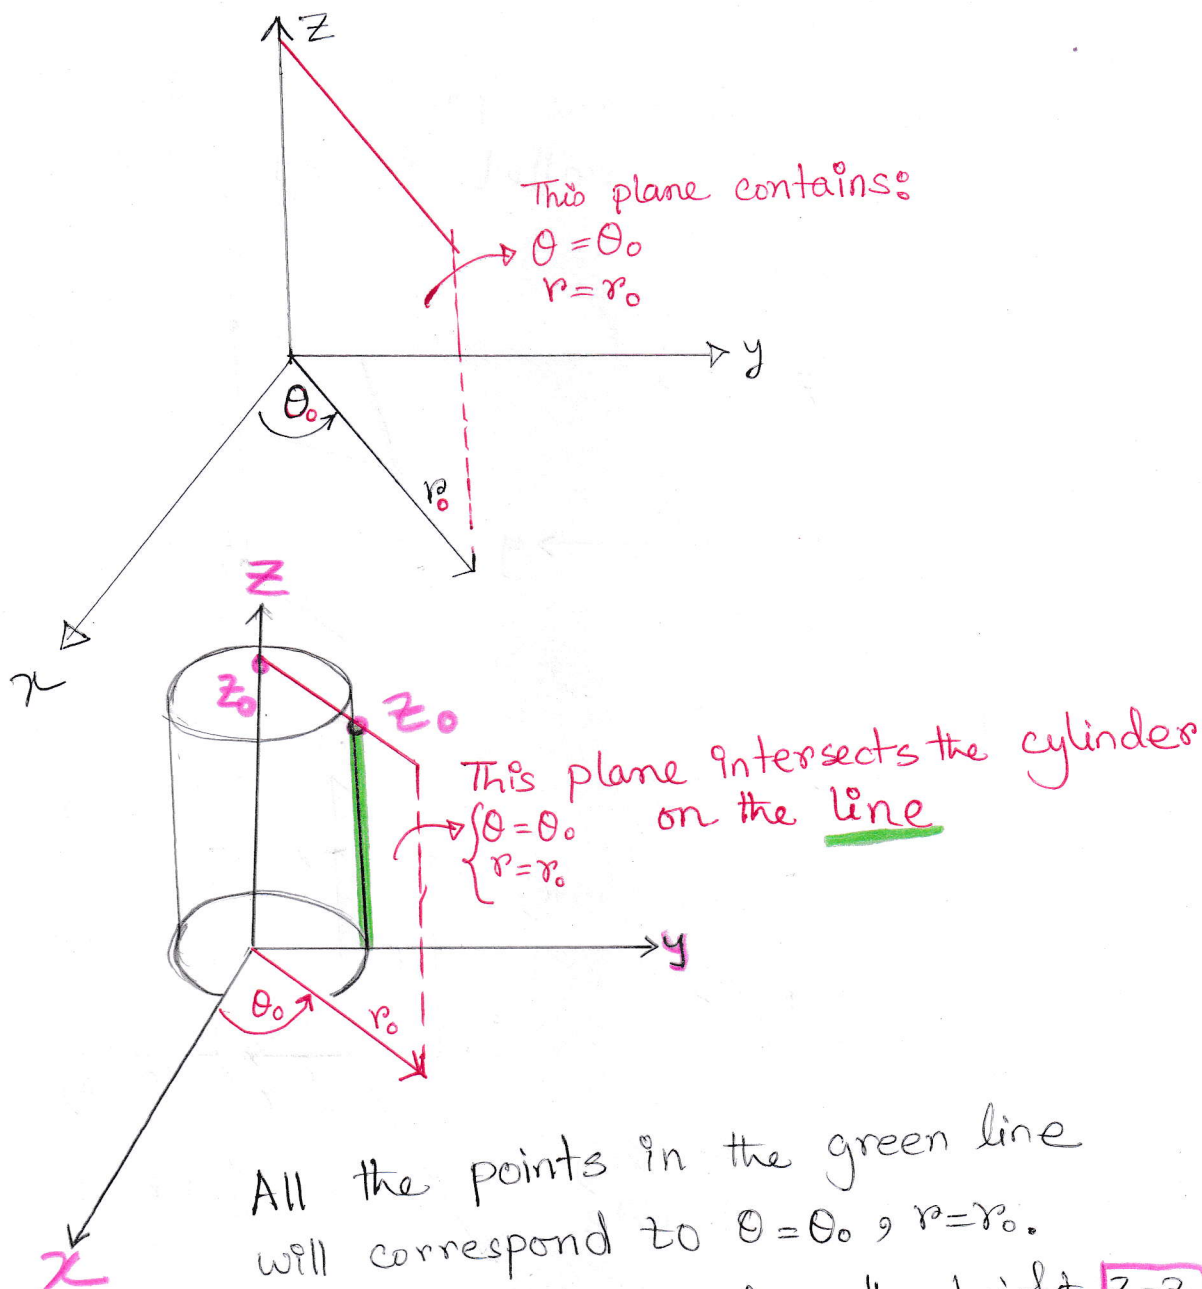 z
This plane contains:
θ = θ₀
r = r₀
y
θ₀
r₀
x
z
z₀
z₀
This plane intersects the cylinder
on the line
θ = θ₀
r = r₀
y
θ₀
r₀
All the points in the green line
will correspond to θ = θ₀, r = r₀.
x